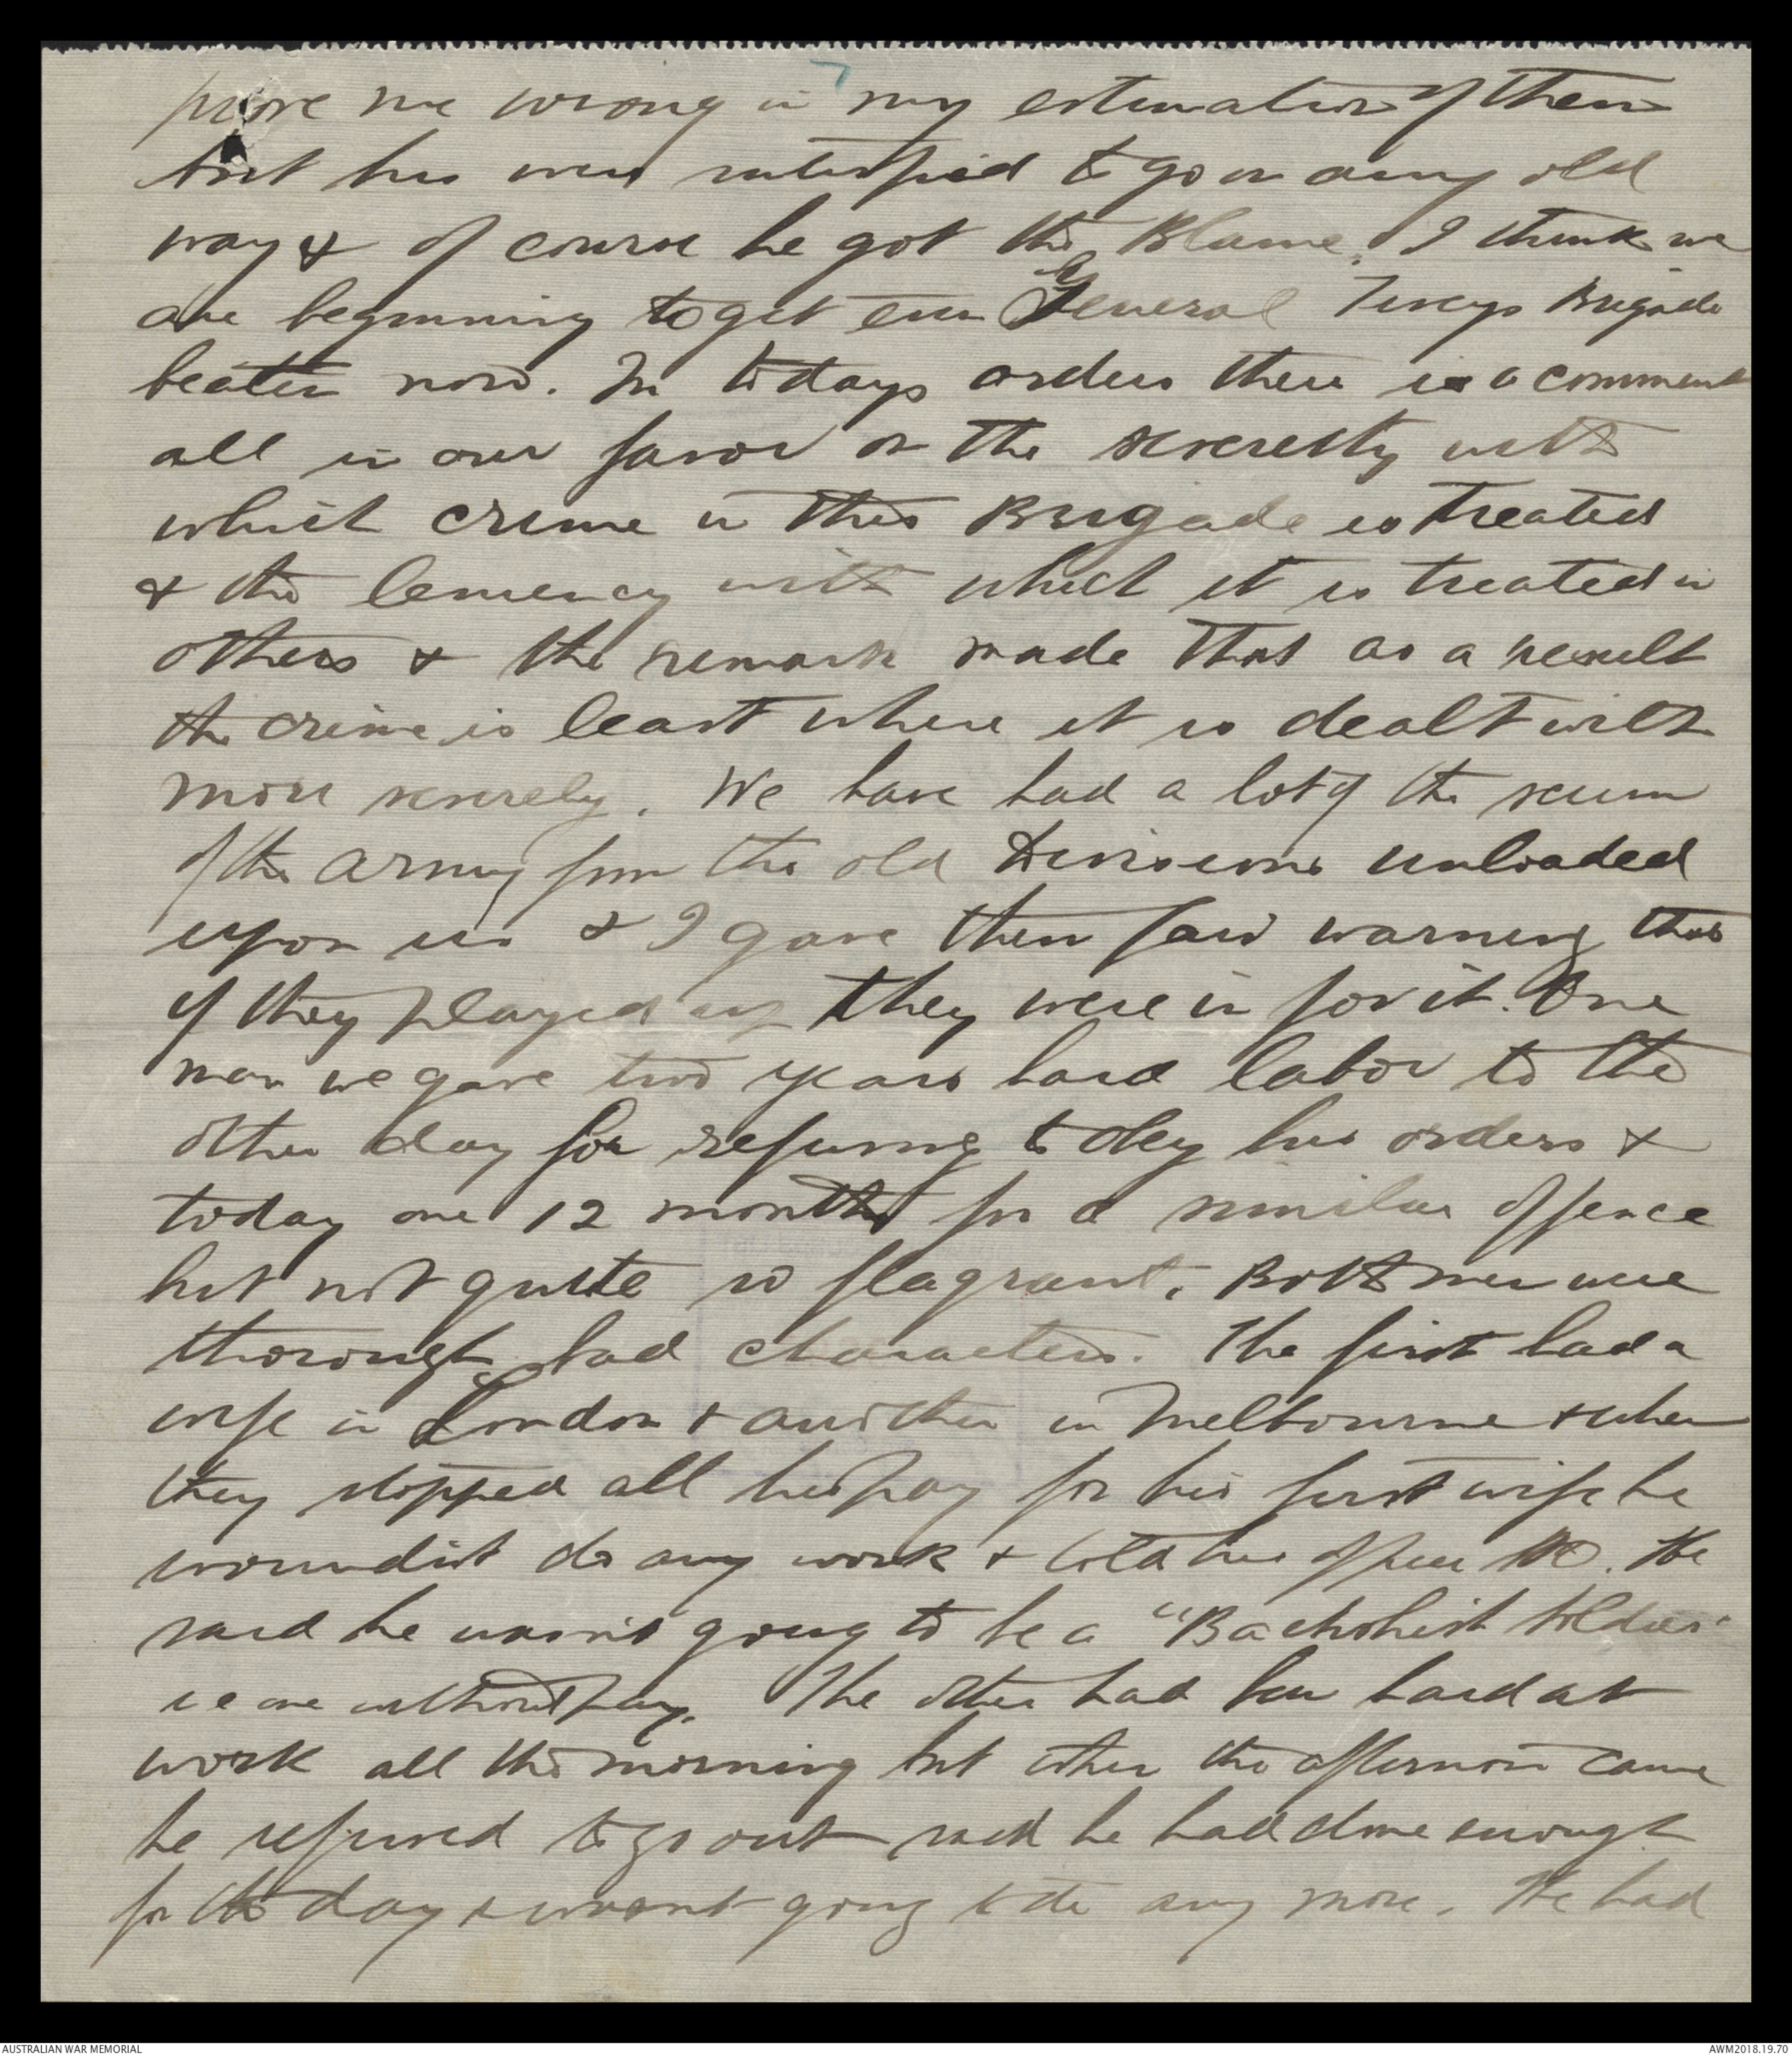 7
prove me wrong in my estimation of them
but his men to go on any old
way & of course he got the Blame. I think we
are beginning to get even General Tiveys Brigade
beaten now. In todays orders there is a comment
all in our favor on the severelty with
which crime in this Brigade is treated
& the leniency with which it is treated in
others & the remark made that as a result
the crime is least where it is dealt with
more severely. We have had a lot of the scum
of the Army from the old Divisions unloaded
upon us & I gave them fair warning that
if they played up they were in for it. One
man we gave two years hard labor to the
other day for refusing to obey his orders &
today one 12 months for a similar offence
but not quite so flagrant. Both men were
thorough bad characters. The first had a
wife in London & another in Melbourne & when
they stopped all his pay for his first wife he
woundnt do any work & told his officer so. He
said he wasnt going to be a "Backsheesh soldier"
ie one without pay. The other had been hard at
work all the morning but when the afternoon came
he refused to go out said he had done enough
for the day & wasnt going to do any more. He had
AUSTRALIAN WAR MEMORIAL
AWM2018.19.70